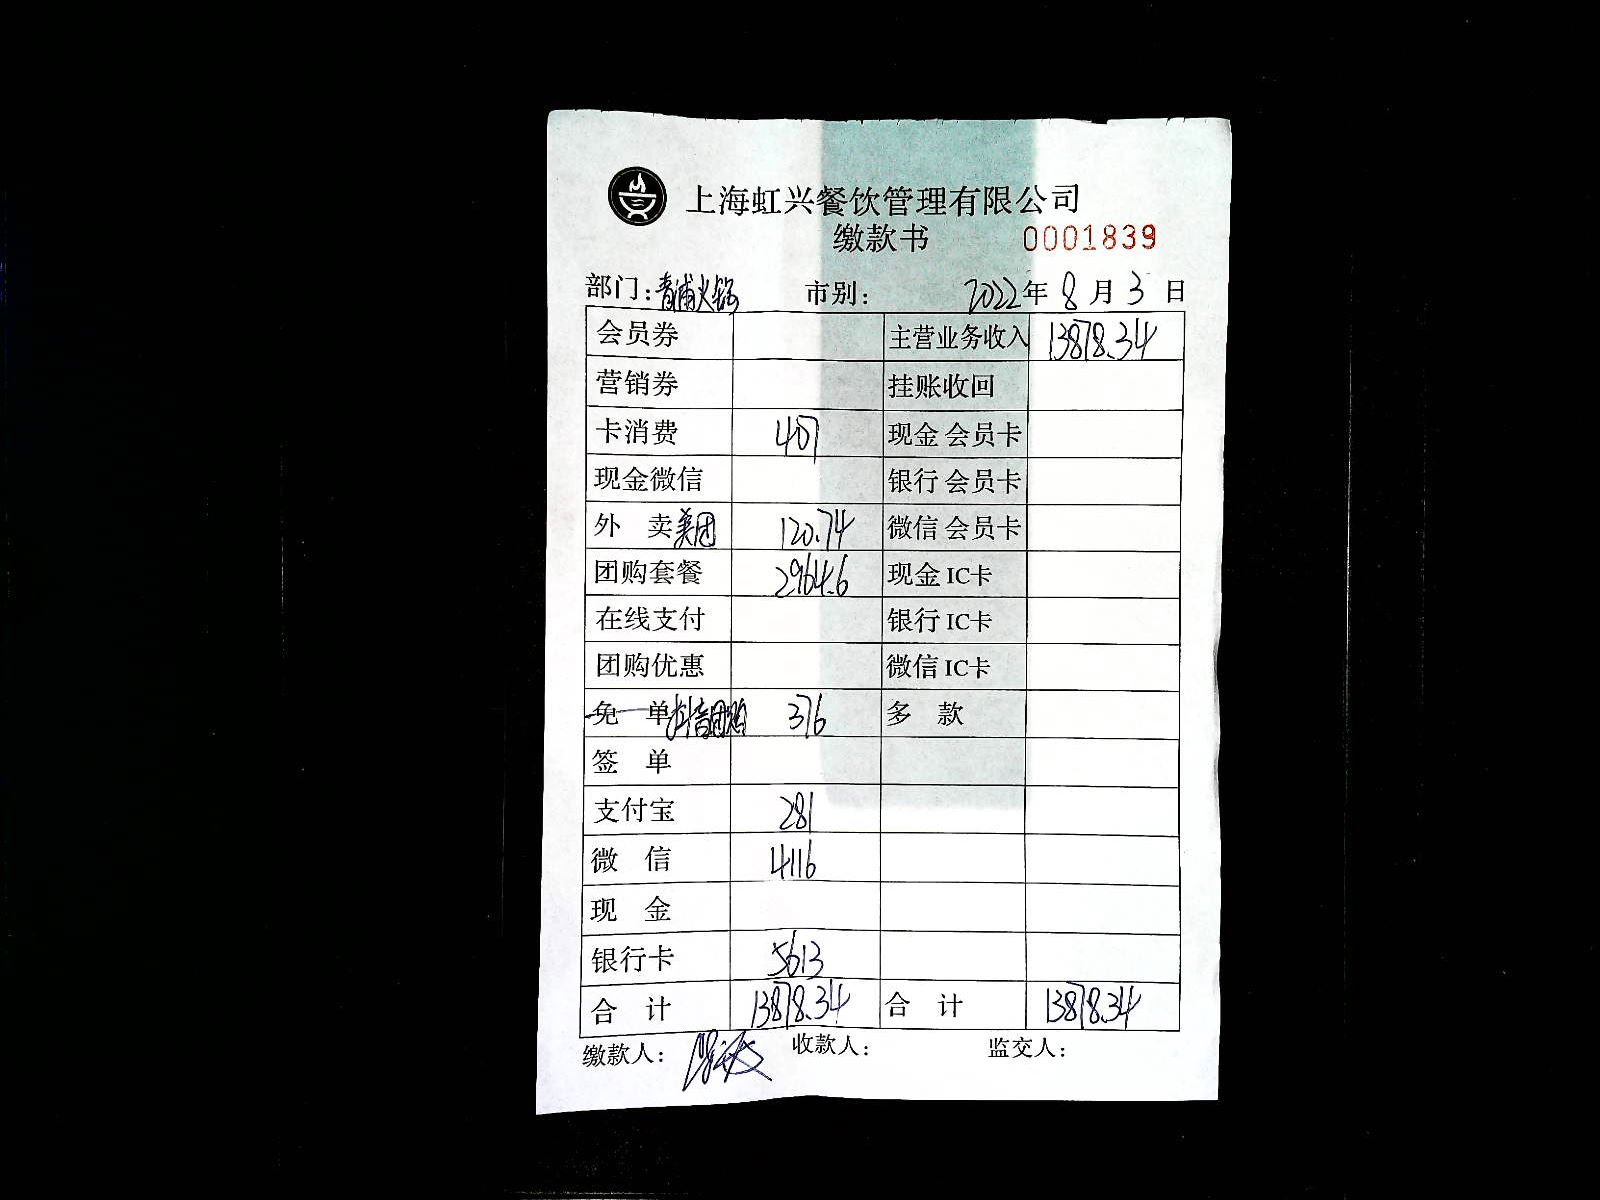 上海虹兴餐饮管理有限公司
缴款书 0001839
部门：青浦火锅 市别： 2022年 8 月 3 日
会员券 主营业务收入 13878.34
营销券 挂账收回
卡消费 407 现金 会员卡
现金微信 银行 会员卡
外 卖美团 120.74 微信 会员卡
团购套餐 2964.6 现金 IC卡
在线支付 银行 IC卡
团购优惠 微信 IC卡
免 单 抖音团购 376 多 款
签 单
支付宝 281
微 信 4116
现 金
银行卡 5613
合 计 13878.34 合 计 13878.34
缴款人： 收款人： 监交人：